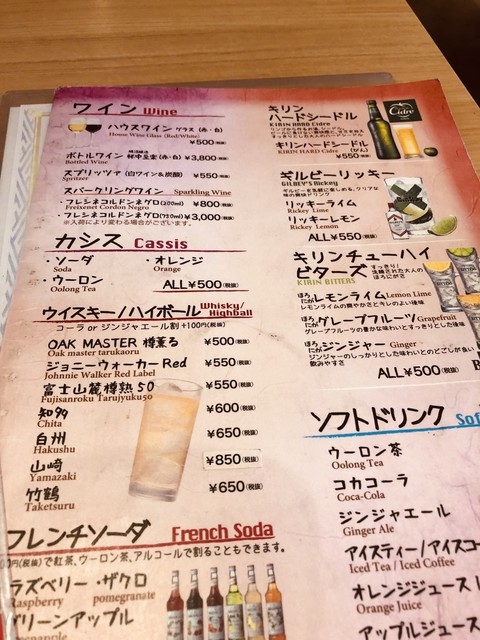 ワイン Wine
ハウスワイン グラス (赤・白)
House Wine Glass (Red/White)
¥500(税抜)
ボトルワイン (赤・白) ¥3,800(税抜)
Bottled Wine
スプリッツァ (白ワイン&炭酸) ¥550(税抜)
Spritzer
スパークリングワイン Sparkling Wine
・フレシネコルドンネグロ(200ml) ¥800(税抜)
Freixenet Cordon Negro
・フレシネコルドンネグロ(750ml) ¥3,000(税抜)
※入荷により変わる場合がございます。
カシス Cassis
・ソーダ ・オレンジ
Soda Orange
・ウーロン ALL¥500(税抜)
Oolong Tea
ウイスキー/ハイボール Whisky/Highball
コーラ or ジンジャエール割 +100円(税抜)
OAK MASTER 樽薫る ¥500(税抜)
Oak master tarukaoru
ジョニーウォーカー Red ¥550(税抜)
Johnnie Walker Red Label
富士山麓樽熟50 ¥550(税抜)
Fujisanroku Tarujyuku50
知多 ¥600(税抜)
Chita
白州 ¥650(税抜)
Hakushu
山崎 ¥850(税抜)
Yamazaki
竹鶴 ¥650(税抜)
Taketsuru
フレンチソーダ French Soda
00円(税抜)で紅茶、ウーロン茶、アルコールで割ることもできます。
ラズベリー ・ザクロ
Raspberry pomegranate
グリーンアップル
キリン
ハードシードル
KIRIN HARD Cidre
キリンハードシードル
KIRIN HARD Cidre (びん)
¥550(税抜)
Cidre
ギルビーリッキー
GILBEY'S Rickey
リッキーライム
Rickey Lime
リッキーレモン
Rickey Lemon
ALL¥550(税抜)
キリンチューハイ
ビターズ すっきり!洗練された大人のほろにがさ
KIRIN BITTERS
ほろにがレモンライム Lemon Lime
レモンライムの爽やかさと今しのよい後味
ほろにがグレープフルーツ Grapefruit
グレープフルーツの豊かな味わいとすっきりとした後味
ほろにがジンジャー Ginger
ジンジャーのしっかりとした味わいとのどごしが良い飲みやすさ
ALL¥500(税抜)
ソフトドリンク Sof
ウーロン茶
Oolong Tea
コカコーラ
Coca-Cola
ジンジャエール
Ginger Ale
アイスティー/アイスコー
Iced Tea / Iced Coffee
オレンジジュース
Orange Juice
アップルジュース